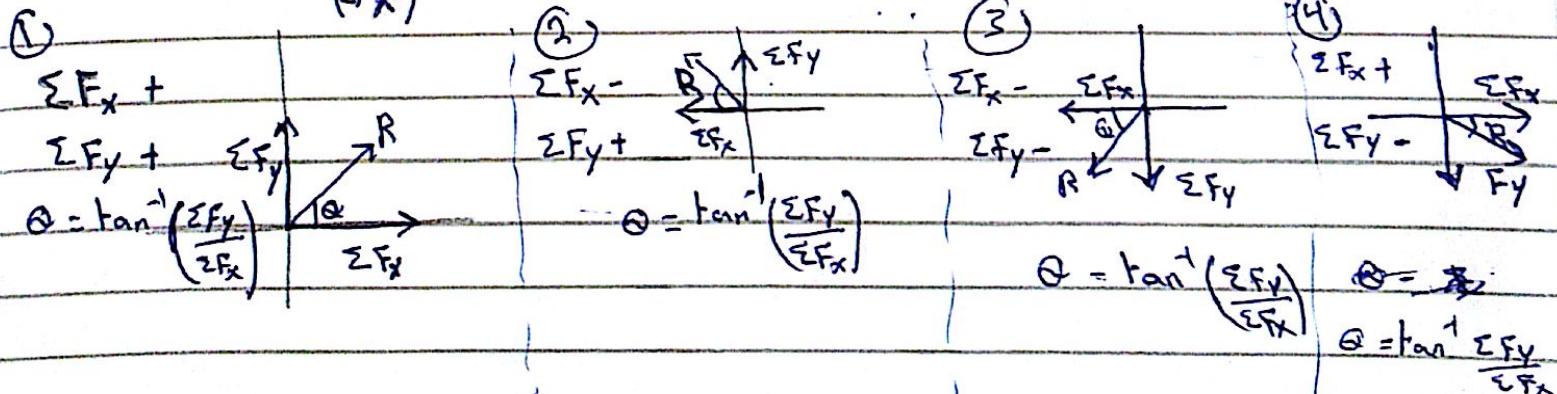 ①
ΣFx +
ΣFy +
ΣFy
R
θ
ΣFx
θ = tan⁻¹(ΣFy/ΣFx)
②
ΣFx -
ΣFy +
ΣFy
R
ΣFx
θ = tan⁻¹(ΣFy/ΣFx)
③
ΣFx -
ΣFy -
ΣFx
θ
R
ΣFy
θ = tan⁻¹(ΣFy/ΣFx)
④
ΣFx +
ΣFy -
ΣFx
R
Fy
θ =
θ = tan⁻¹ ΣFy/ΣFx